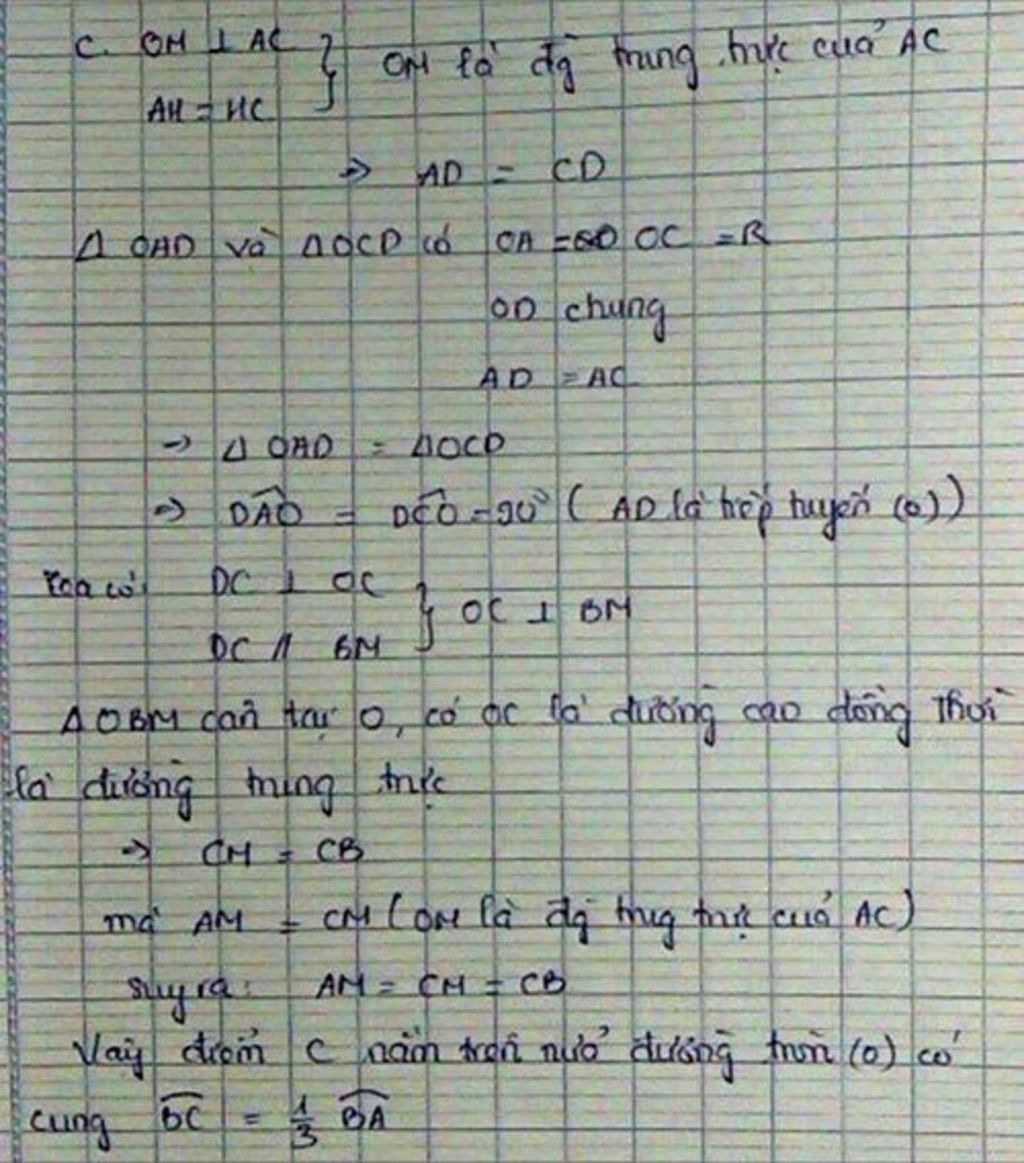 c. OM ⊥ AC } OM là đg trung trực của AC
AH = HC
=> AD = CD
Δ OAD và ΔOCD có OA = OC = R
OD chung
AD = AC
-> Δ OAD = ΔOCD
=> DAO = DCO = 90° ( AD là tiếp tuyến (O))
Ta có: DC ⊥ OC } OC ⊥ BM
DC // BM
ΔOBM cân tại O, có OC là đường cao đồng thời
là đường trung trực
-> CM = CB
mà AM = CM (OM là đg trug trực của AC)
suy ra: AM = CM = CB
Vậy điểm C nằm trên nửa đường tròn (O) có
cung BC = 1/3 BA